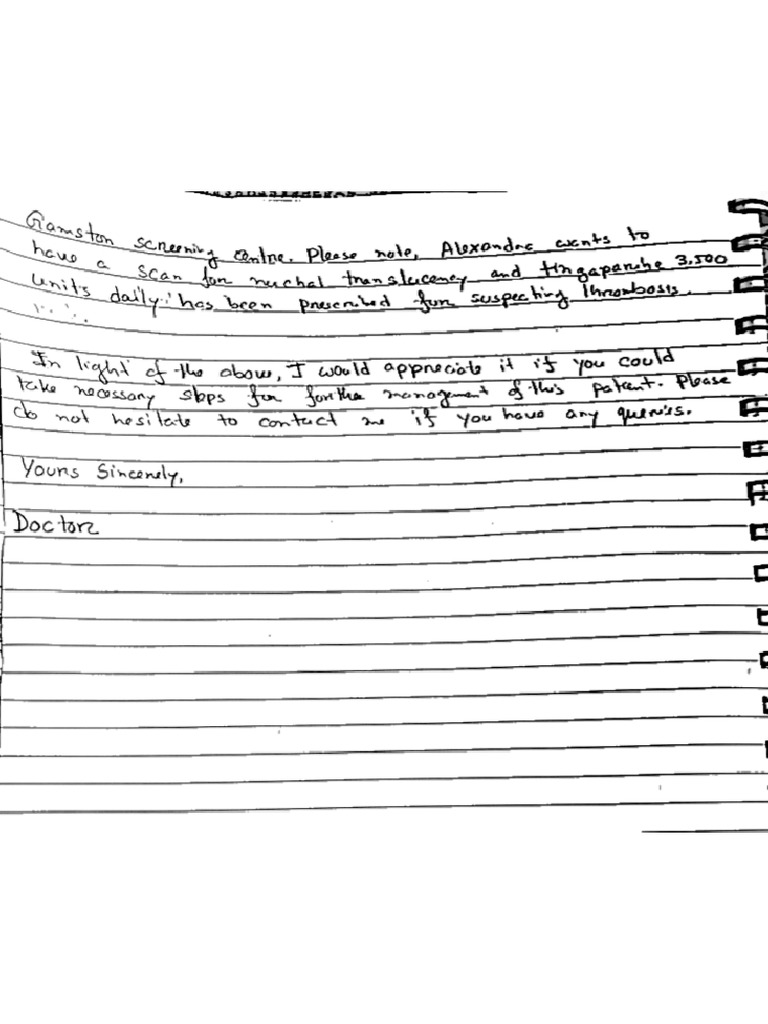 Gamston screening centre. Please note, Alexandra wants to
have a scan for nuchal translucency and tingaparine 3,500
units daily has been prescribed for suspecting thrombosis.
In light of the above, I would appreciate it if you could
take necessary steps for forthe management of this patent. Please
do not hesitate to contact me if you have any queries.
Yours Sincerely,
Doctor